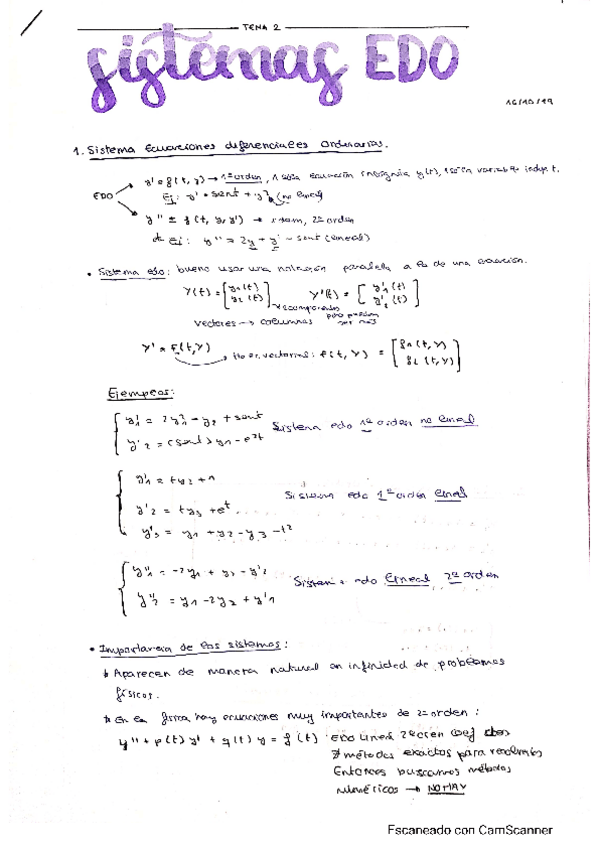 TEMA 2
sistemas EDO
16/10/19
1. Sistema Ecuaciones diferenciales Ordinarias.
y' = f(t, y) → 1er orden, 1 sola ecuación, 1 incógnita y(t), 1 sola variable indep t.
EDO
Ej: y' = sent + y² (no lineal)
y'' = f(t, y, y') → idem, 2º orden
Ej: y'' = 2y + y' - sent (lineal)
• Sistema edo: bueno usar una notación paralela a la de una ecuación.
Y(t) = [y1(t) y2(t)] Y'(t) = [y'1(t) y'2(t)]
2 componentes
vectores → columnas
Y' = F(t,Y) vectorial: F(t,Y) = [f1(t,Y) f2(t,Y)]
Ejemplos:
y'1 = 2y1² - y2 + sent
Sistema edo 1er orden no lineal
y'2 = (sent)y1 - e²t
y'1 = ty2 + 1
Sistema edo 1er orden lineal
y'2 = ty3 + et
y'3 = y1 + y2 - y3 - t²
y''1 = -2y1 + y2 - y'2
Sistema edo lineal 2º orden
y''2 = y1 - 2y2 + y'1
• Importancia de los sistemas:
* Aparecen de manera natural en infinidad de problemas
físicos.
* En la física hay ecuaciones muy importantes de 2º orden:
y'' + p(t) y' + q(t) y = f(t) EDO lineal 2º orden coef
∄ métodos exactos para resolverlos
Entonces buscamos métodos
numéricos → NO HAY
Escaneado con CamScanner